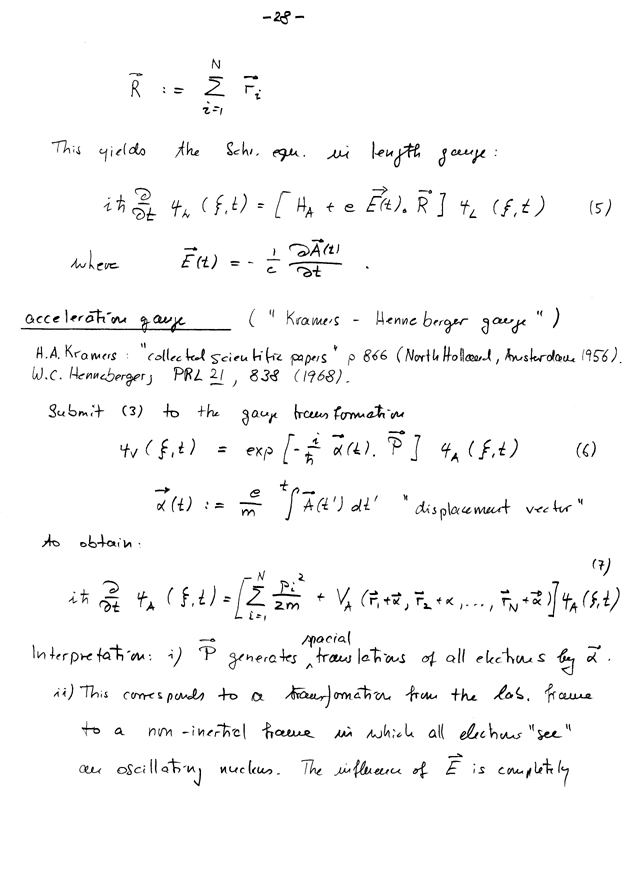 -28-
R⃗ := Σ_{i=1}^{N} r⃗_i
This yields the Schr. equ. in length gauge:
iħ ∂/∂t Ψ_L (ξ,t) = [ H_A + e E⃗(t)·R⃗ ] Ψ_L (ξ,t) (5)
where E⃗(t) = - 1/c ∂A⃗(t)/∂t .
acceleration gauge ("Kramers - Henneberger gauge")
H.A. Kramers: "collected scientific papers" p 866 (North Holland, Amsterdam 1956).
W.C. Henneberger, PRL 21, 838 (1968).
Submit (3) to the gauge transformation
Ψ_V (ξ,t) = exp [- i/ħ α⃗(t). P⃗ ] Ψ_A (ξ,t) (6)
α⃗(t) := e/m ∫^t A⃗(t') dt' "displacement vector"
to obtain:
(7)
iħ ∂/∂t Ψ_A (ξ,t) = [ Σ_{i=1}^{N} p_i²/2m + V_A (r⃗_1+α⃗, r⃗_2+α, ..., r⃗_N+α⃗) ] Ψ_A (ξ,t)
Interpretation: i) P⃗ generates spacial translations of all electrons by α⃗.
ii) This corresponds to a transfomation from the lab. frame
to a non-inertial frame in which all electrons "see"
an oscillating nucleus. The influence of E⃗ is completely